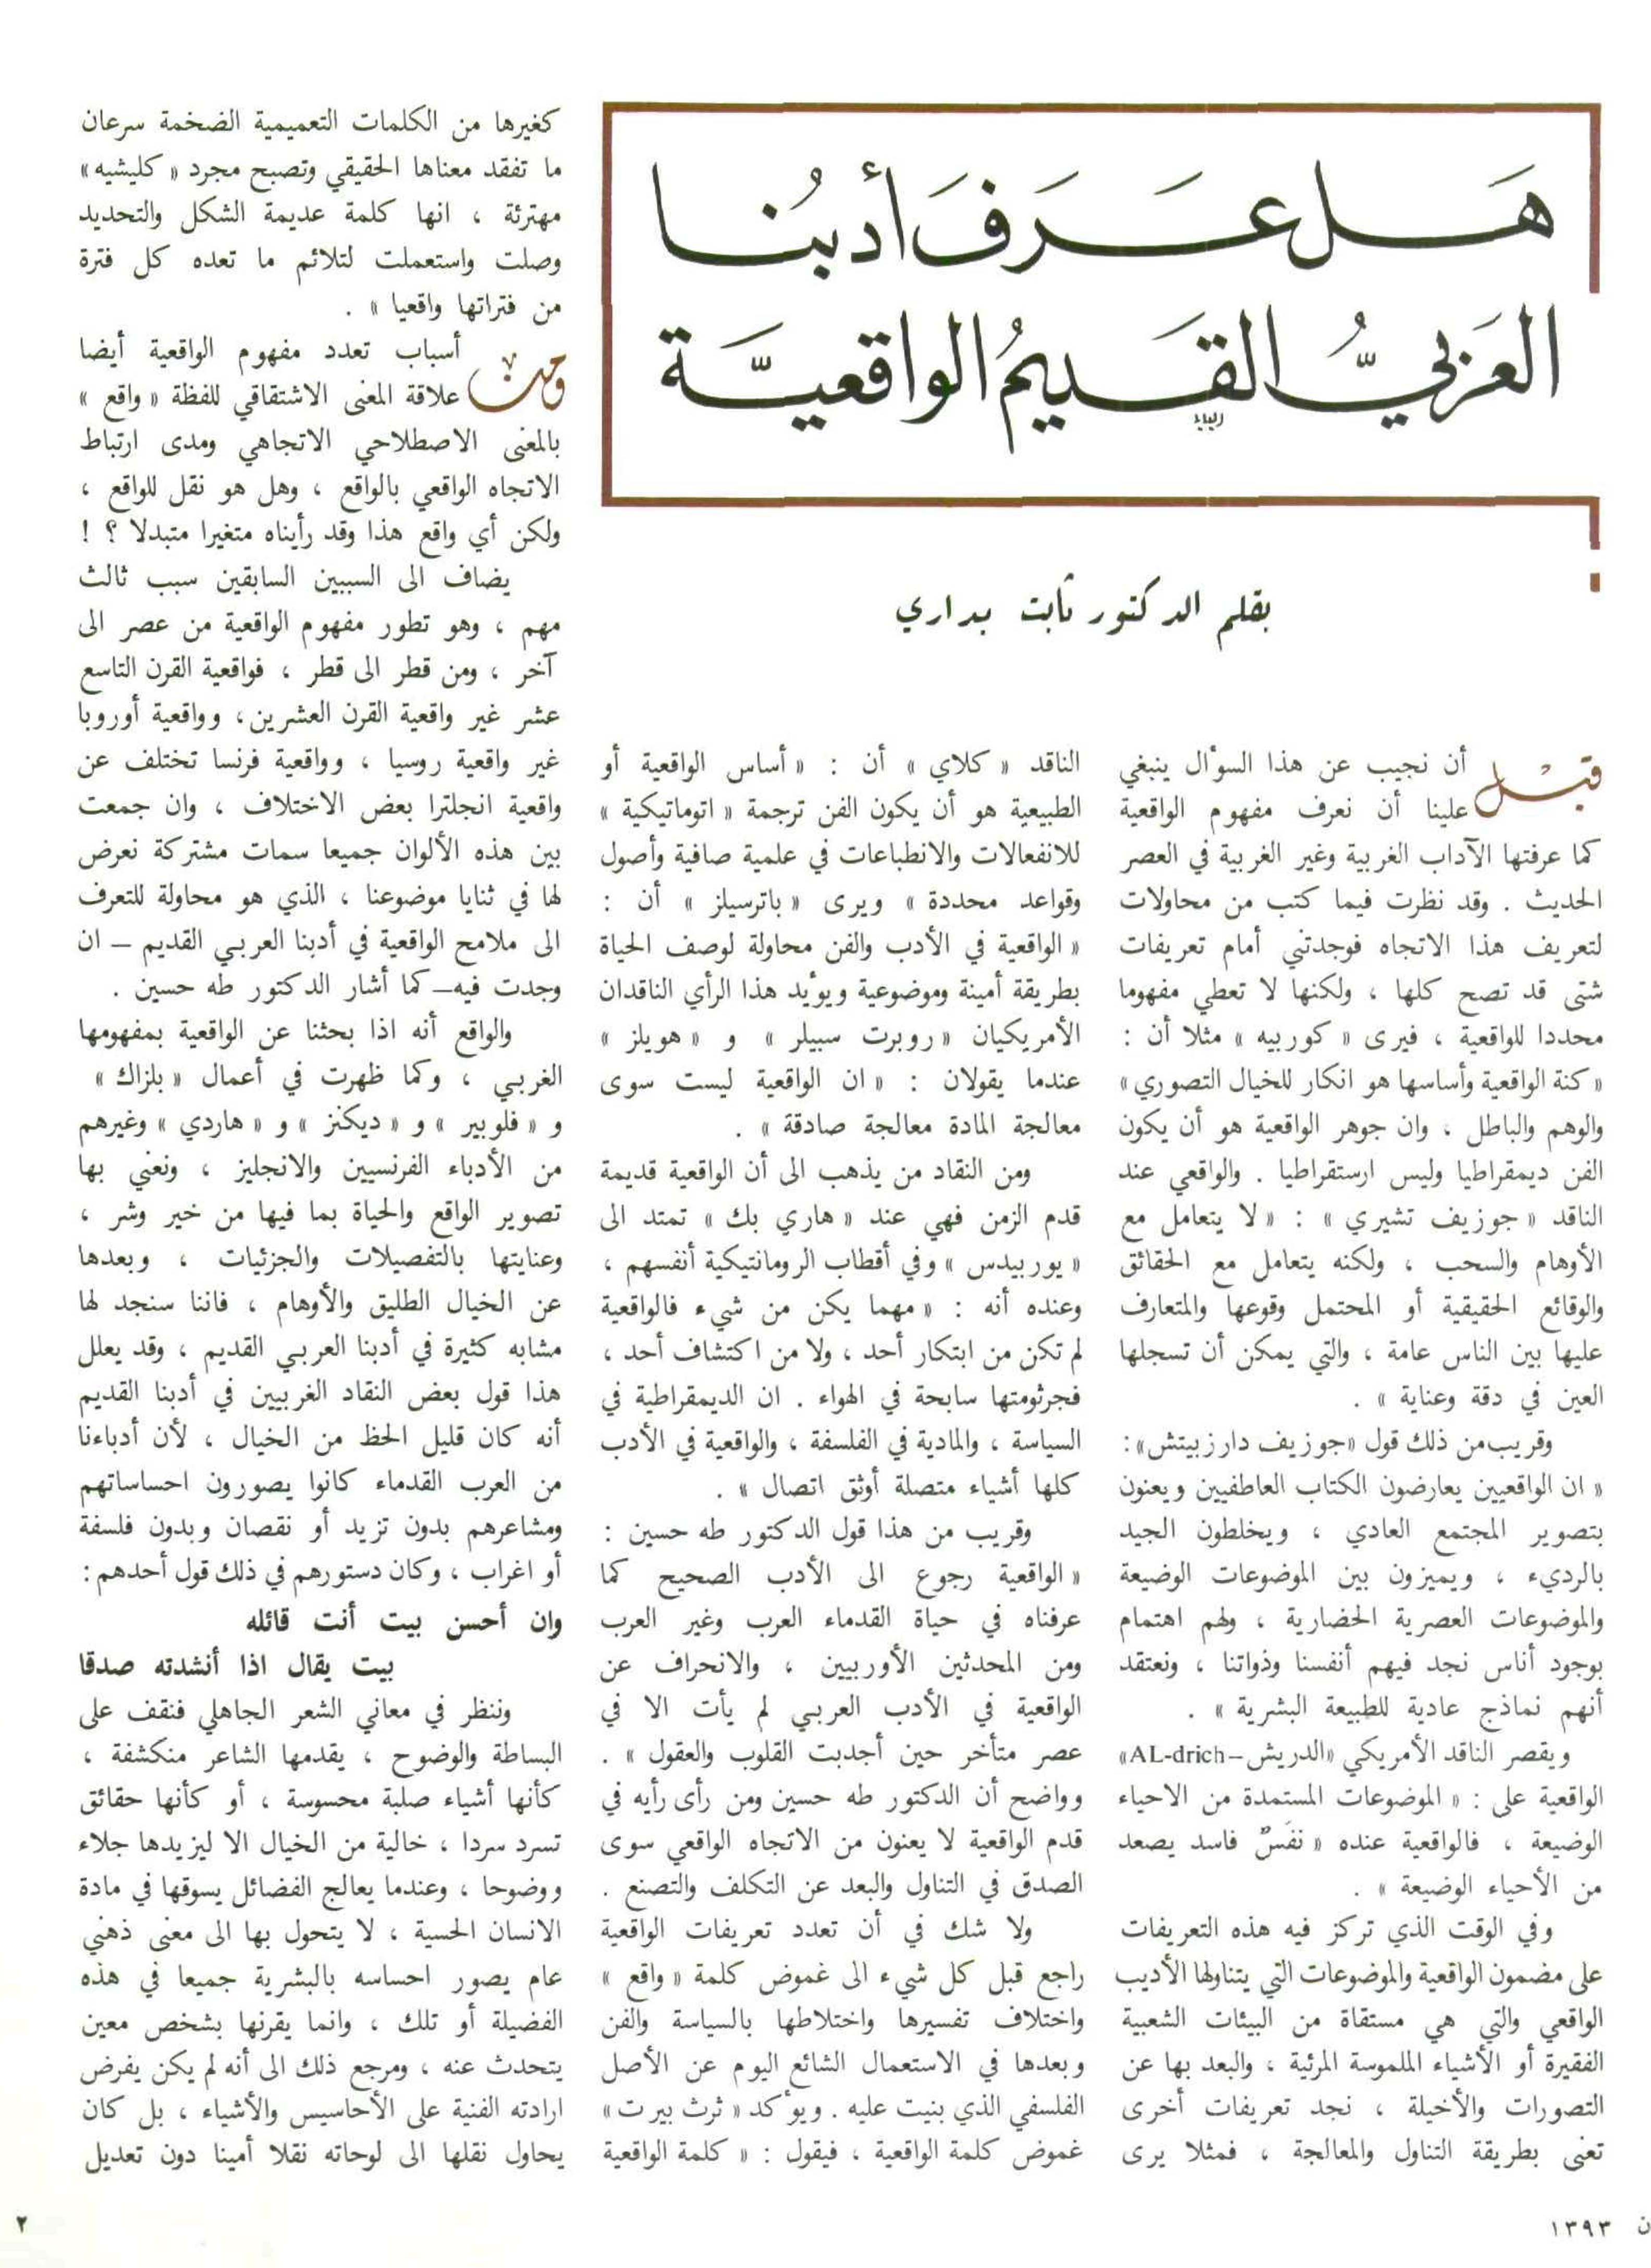 هل عرف أدبنا
العربيّ القديم الواقعيّة
بقلم الدكتور ثابت بداري
قبل أن نجيب عن هذا السؤال ينبغي
علينا أن نعرف مفهوم الواقعية
كما عرفتها الآداب الغربية وغير الغربية في العصر
الحديث . وقد نظرت فيما كتب من محاولات
لتعريف هذا الاتجاه فوجدتني أمام تعريفات
شتى قد تصح كلها ، ولكنها لا تعطي مفهوما
محددا للواقعية ، فيرى « كوربيه » مثلا أن :
« كنة الواقعية وأساسها هو انكار للخيال التصوري »
والوهم والباطل ، وان جوهر الواقعية هو أن يكون
الفن ديمقراطيا وليس ارستقراطيا . والواقعي عند
الناقد « جوزيف تشيري » : « لا يتعامل مع
الأوهام والسحب ، ولكنه يتعامل مع الحقائق
والوقائع الحقيقية أو المحتمل وقوعها والمتعارف
عليها بين الناس عامة ، والتي يمكن أن تسجلها
العين في دقة وعناية » .
وقريب من ذلك قول «جوزيف دارزبيتش»:
« ان الواقعيين يعارضون الكتاب العاطفيين ويعنون
بتصوير المجتمع العادي ، ويخلطون الجيد
بالرديء ، ويميزون بين الموضوعات الوضيعة
والموضوعات العصرية الحضارية ، ولهم اهتمام
بوجود أناس نجد فيهم أنفسنا وذواتنا ، ونعتقد
أنهم نماذج عادية للطبيعة البشرية » .
ويقصر الناقد الأمريكي «الدريش–AL-drich»
الواقعية على : « الموضوعات المستمدة من الاحياء
الوضيعة ، فالواقعية عنده « نفَسٌ فاسد يصعد
من الأحياء الوضيعة » .
وفي الوقت الذي تركز فيه هذه التعريفات
على مضمون الواقعية والموضوعات التي يتناولها الأديب
الواقعي والتي هي مستقاة من البيئات الشعبية
الفقيرة أو الأشياء الملموسة المرئية ، والبعد بها عن
التصورات والأخيلة ، نجد تعريفات أخرى
تعنى بطريقة التناول والمعالجة ، فمثلا يرى
الناقد « كلاي » أن : « أساس الواقعية أو
الطبيعية هو أن يكون الفن ترجمة « اتوماتيكية »
للانفعالات والانطباعات في علمية صافية وأصول
وقواعد محددة » ويرى « باترسيلز » أن :
« الواقعية في الأدب والفن محاولة لوصف الحياة
بطريقة أمينة وموضوعية ويؤيد هذا الرأي الناقدان
الأمريكيان « روبرت سبيلر » و « هويلز »
عندما يقولان : « ان الواقعية ليست سوى
معالجة المادة معالجة صادقة » .
ومن النقاد من يذهب الى أن الواقعية قديمة
قدم الزمن فهي عند « هاري بك » تمتد الى
« يوربيدس » وفي أقطاب الرومانتيكية أنفسهم ،
وعنده أنه : « مهما يكن من شيء فالواقعية
لم تكن من ابتكار أحد ، ولا من اكتشاف أحد ،
فجرثومتها سابحة في الهواء . ان الديمقراطية في
السياسة ، والمادية في الفلسفة ، والواقعية في الأدب
كلها أشياء متصلة أوثق اتصال » .
وقريب من هذا قول الدكتور طه حسين :
« الواقعية رجوع الى الأدب الصحيح كما
عرفناه في حياة القدماء العرب وغير العرب
ومن المحدثين الأوربيين ، والانحراف عن
الواقعية في الأدب العربي لم يأت الا في
عصر متأخر حين أجدبت القلوب والعقول » .
وواضح أن الدكتور طه حسين ومن رأى رأيه في
قدم الواقعية لا يعنون من الاتجاه الواقعي سوى
الصدق في التناول والبعد عن التكلف والتصنع .
ولا شك في أن تعدد تعريفات الواقعية
راجع قبل كل شيء الى غموض كلمة « واقع »
واختلاف تفسيرها واختلاطها بالسياسة والفن
وبعدها في الاستعمال الشائع اليوم عن الأصل
الفلسفي الذي بنيت عليه . ويؤكد « ثرث بيرت»
غموض كلمة الواقعية ، فيقول : « كلمة الواقعية
كغيرها من الكلمات التعميمية الضخمة سرعان
ما تفقد معناها الحقيقي وتصبح مجرد « كليشيه»
مهترئة ، انها كلمة عديمة الشكل والتحديد
وصلت واستعملت لتلائم ما تعده كل فترة
من فتراتها واقعيا » .
ومن أسباب تعدد مفهوم الواقعية أيضا
علاقة المعنى الاشتقاقي للفظة « واقع »
بالمعنى الاصطلاحي الاتجاهي ومدى ارتباط
الاتجاه الواقعي بالواقع ، وهل هو نقل للواقع ،
ولكن أي واقع هذا وقد رأيناه متغيرا متبدلا ؟ !
يضاف الى السببين السابقين سبب ثالث
مهم ، وهو تطور مفهوم الواقعية من عصر الى
آخر ، ومن قطر الى قطر ، فواقعية القرن التاسع
عشر غير واقعية القرن العشرين، وواقعية أوروبا
غير واقعية روسيا ، وواقعية فرنسا تختلف عن
واقعية انجلترا بعض الاختلاف ، وان جمعت
بين هذه الألوان جميعا سمات مشتركة نعرض
لها في ثنايا موضوعنا ، الذي هو محاولة للتعرف
الى ملامح الواقعية في أدبنا العربي القديم – ان
وجدت فيه– كما أشار الدكتور طه حسين .
والواقع أنه اذا بحثنا عن الواقعية بمفهومها
الغربي ، وكما ظهرت في أعمال « بلزاك »
و « فلوبير » و « ديكنز » و « هاردي » وغيرهم
من الأدباء الفرنسيين والانجليز ، ونعني بها
تصوير الواقع والحياة بما فيها من خير وشر ،
وعنايتها بالتفصيلات والجزئيات ، وبعدها
عن الخيال الطليق والأوهام ، فاننا سنجد لها
مشابه كثيرة في أدبنا العربي القديم ، وقد يعلل
هذا قول بعض النقاد الغربيين في أدبنا القديم
أنه كان قليل الحظ من الخيال ، لأن أدباءنا
من العرب القدماء كانوا يصورون احساساتهم
ومشاعرهم بدون تزيد أو نقصان وبدون فلسفة
أو اغراب ، وكان دستورهم في ذلك قول أحدهم :
وان أحسن بيت أنت قائله
بيت يقال اذا أنشدته صدقا
وننظر في معاني الشعر الجاهلي فنقف على
البساطة والوضوح ، يقدمها الشاعر منكشفة ،
كأنها أشياء صلبة محسوسة ، أو كأنها حقائق
تسرد سردا ، خالية من الخيال الا ليزيدها جلاء
ووضوحا ، وعندما يعالج الفضائل يسوقها في مادة
الانسان الحسية ، لا يتحول بها الى معنى ذهني
عام يصور احساسه بالبشرية جميعا في هذه
الفضيلة أو تلك ، وانما يقرنها بشخص معين
يتحدث عنه ، ومرجع ذلك الى أنه لم يكن يفرض
ارادته الفنية على الأحاسيس والأشياء ، بل كان
يحاول نقلها الى لوحاته نقلا أمينا دون تعديل
ن ١٣٩٣
٢